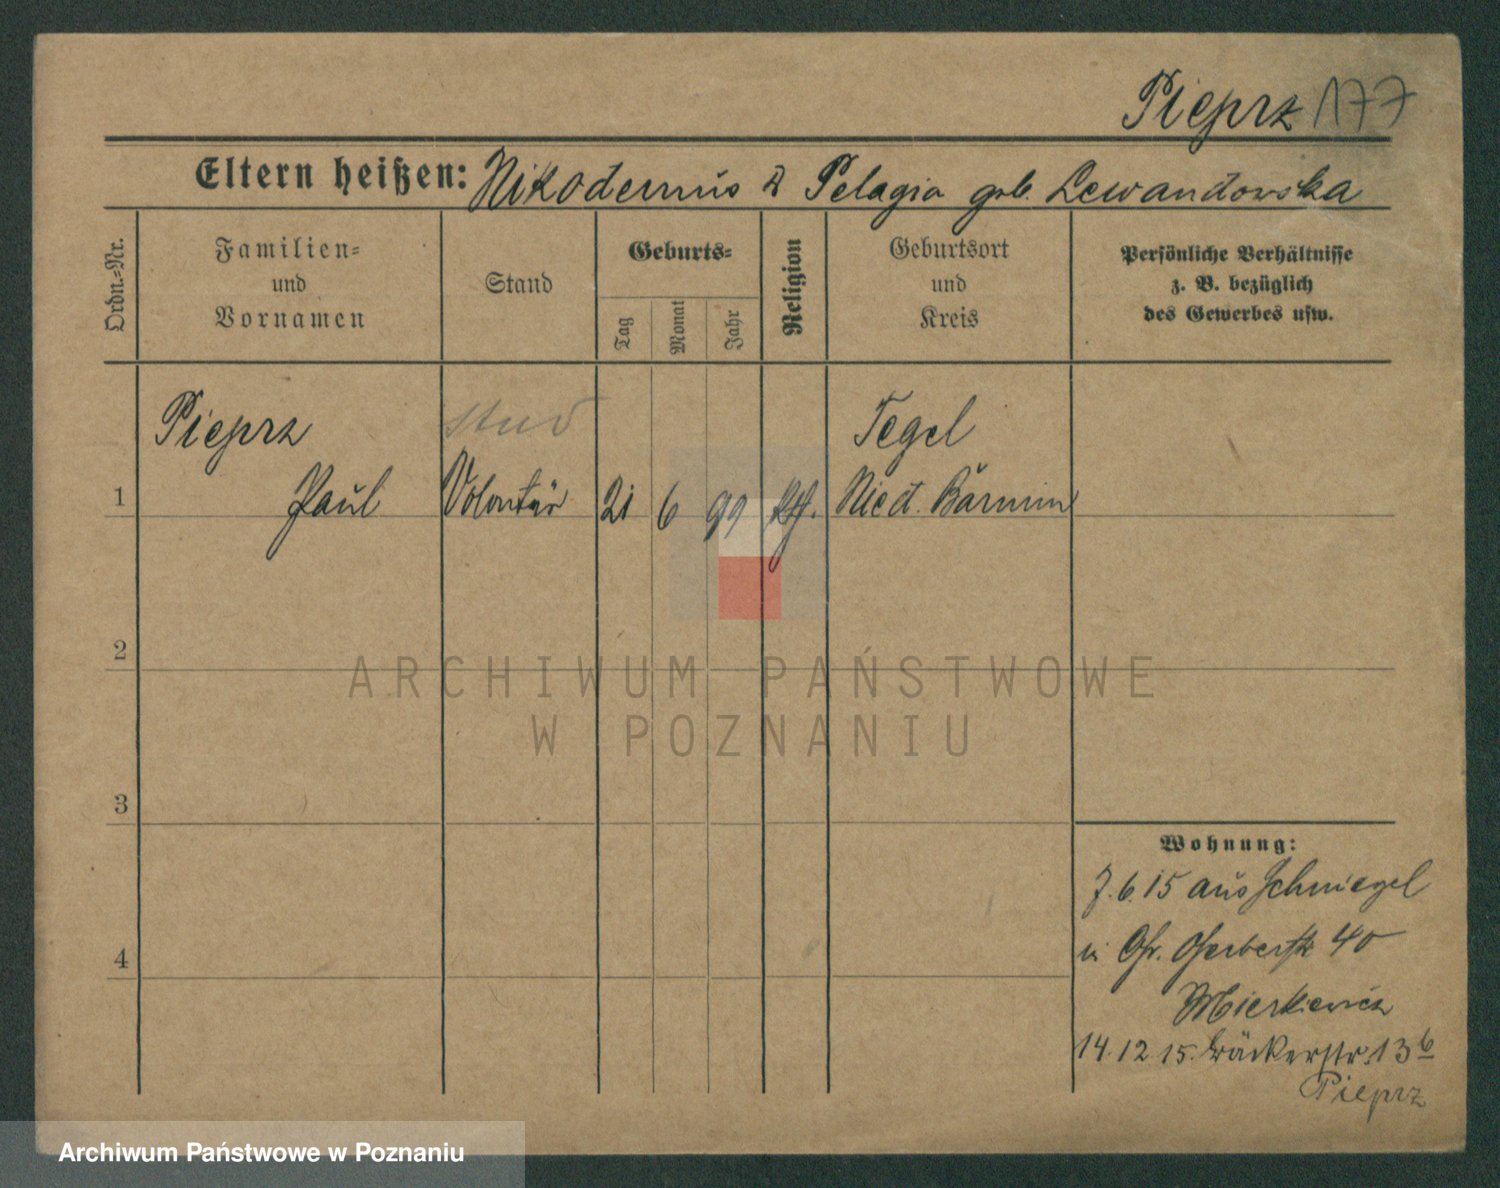 Pieprz 177
Eltern heißen: Nikodemus & Pelagia geb. Lewandowska
Ordn.-Nr.
Familien-
und
Vornamen
Stand
Geburts-
Tag
Monat
Jahr
Religion
Geburtsort
und
Kreis
Persönliche Verhältnisse
z. B. bezüglich
des Gewerbes usw.
Pieprz
stud
Tegel
1 Paul Volontär 21 6 99 kth. Nied. Barnim
2
3
4
Wohnung:
7.6.15 aus Schmiegel
in Gr. Gerberstr 40
Mierkiewicz
14.12 15. Bäckerstr. 13 b
Pieprz
ARCHIWUM PAŃSTWOWE
W POZNANIU
Archiwum Państwowe w Poznaniu